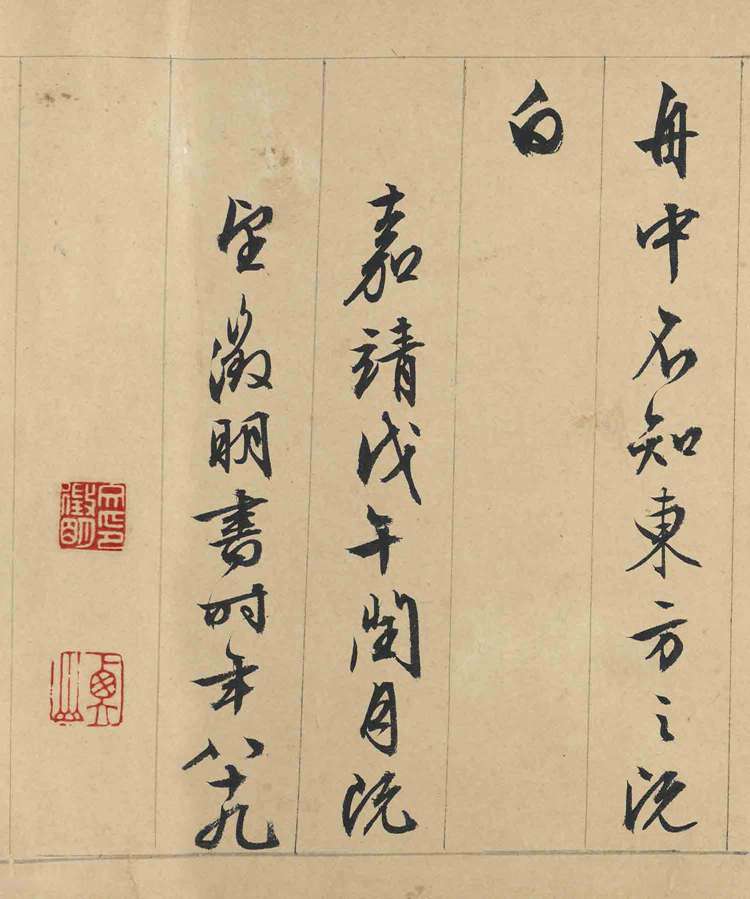 舟中不知東方之既
白
嘉靖戊午閏月既
望徵明書時年八十九
文徵明印
衡山